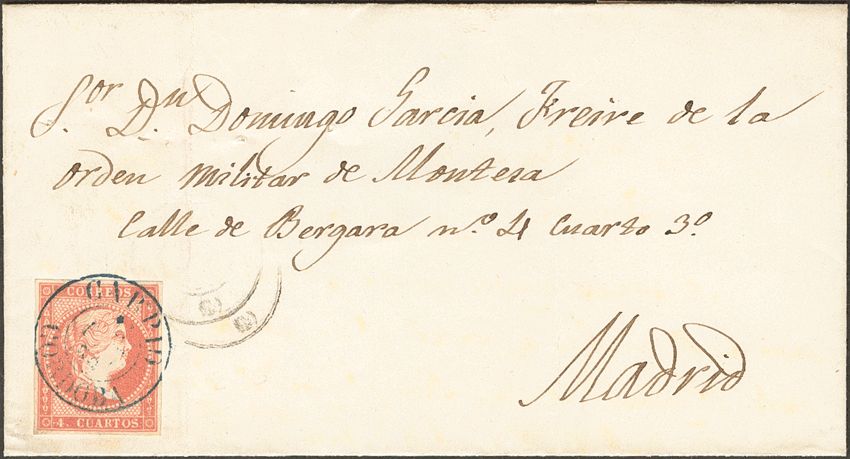 S.or D.n Domingo Garcia, Freire de la
orden militar de Montesa
Calle de Bergara n.º 4 Cuarto 3.º
Madrid
CORREOS
4. CUARTOS
CARPIO
CORDOBA